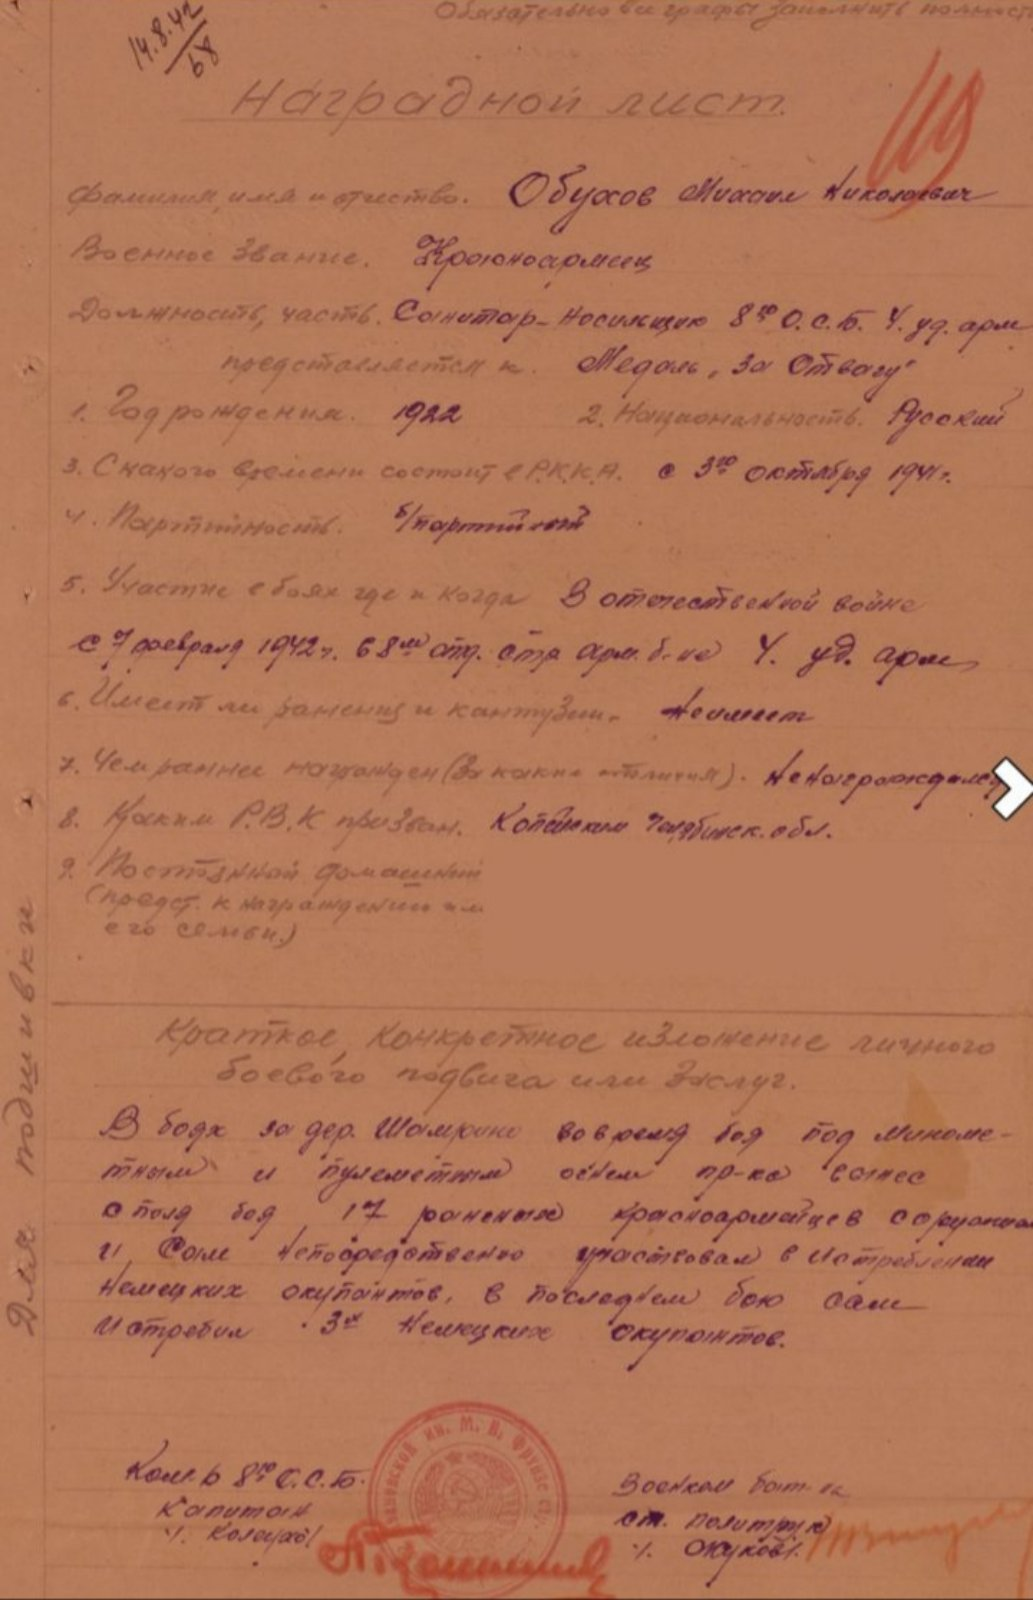 Обязательно все графы заполнить полност
14.8.42
68
Наградной лист.
Фамилия, имя и отчество. Обухов Михаил Николаевич
Военное звание. Красноармеец
Должность, часть. Санитар-носильщик 8го О.С.Б. 4. уд. арм
представляется к. Медаль „За Отвагу"
1. Год рождения. 1922 2. Национальность. Русский
3. С какого времени состоит в Р.К.К.А. с 3го октября 1941г.
4. Партийность. б/партийный
5. Участие в боях где и когда В отечественной войне
с 7 февраля 1942г. в 8м отд. стр арм. б-не 4. уд. арм
6. Имеет ли ранения и кантузии. Не имеет
7. Чем раннее награжден (за какие отличия). Ненаграждался
8. Каким Р.В.К призван. Копейским Челябинск. обл.
9. Постянный домашний
(предст. к награждению и
его семьи.)
Для подшивки
Краткое, конкретное изложение личного
боевого подвига или заслуг.
В боях за дер. во время боя под миноме-
тным и пулеметным огнем пр-ка вынес
с поля боя 17 раненых красноармейцев с оружием
и сам непосредственно участвовал в истреблении
немецких окупантов, в последнем бою сам
истребил 3х немецких окупантов.
Ком-р 8го О.С.Б.
Капитан
Военком бат-на
ст. политрук
/Жуков/.
им. М. В. Фрунзе